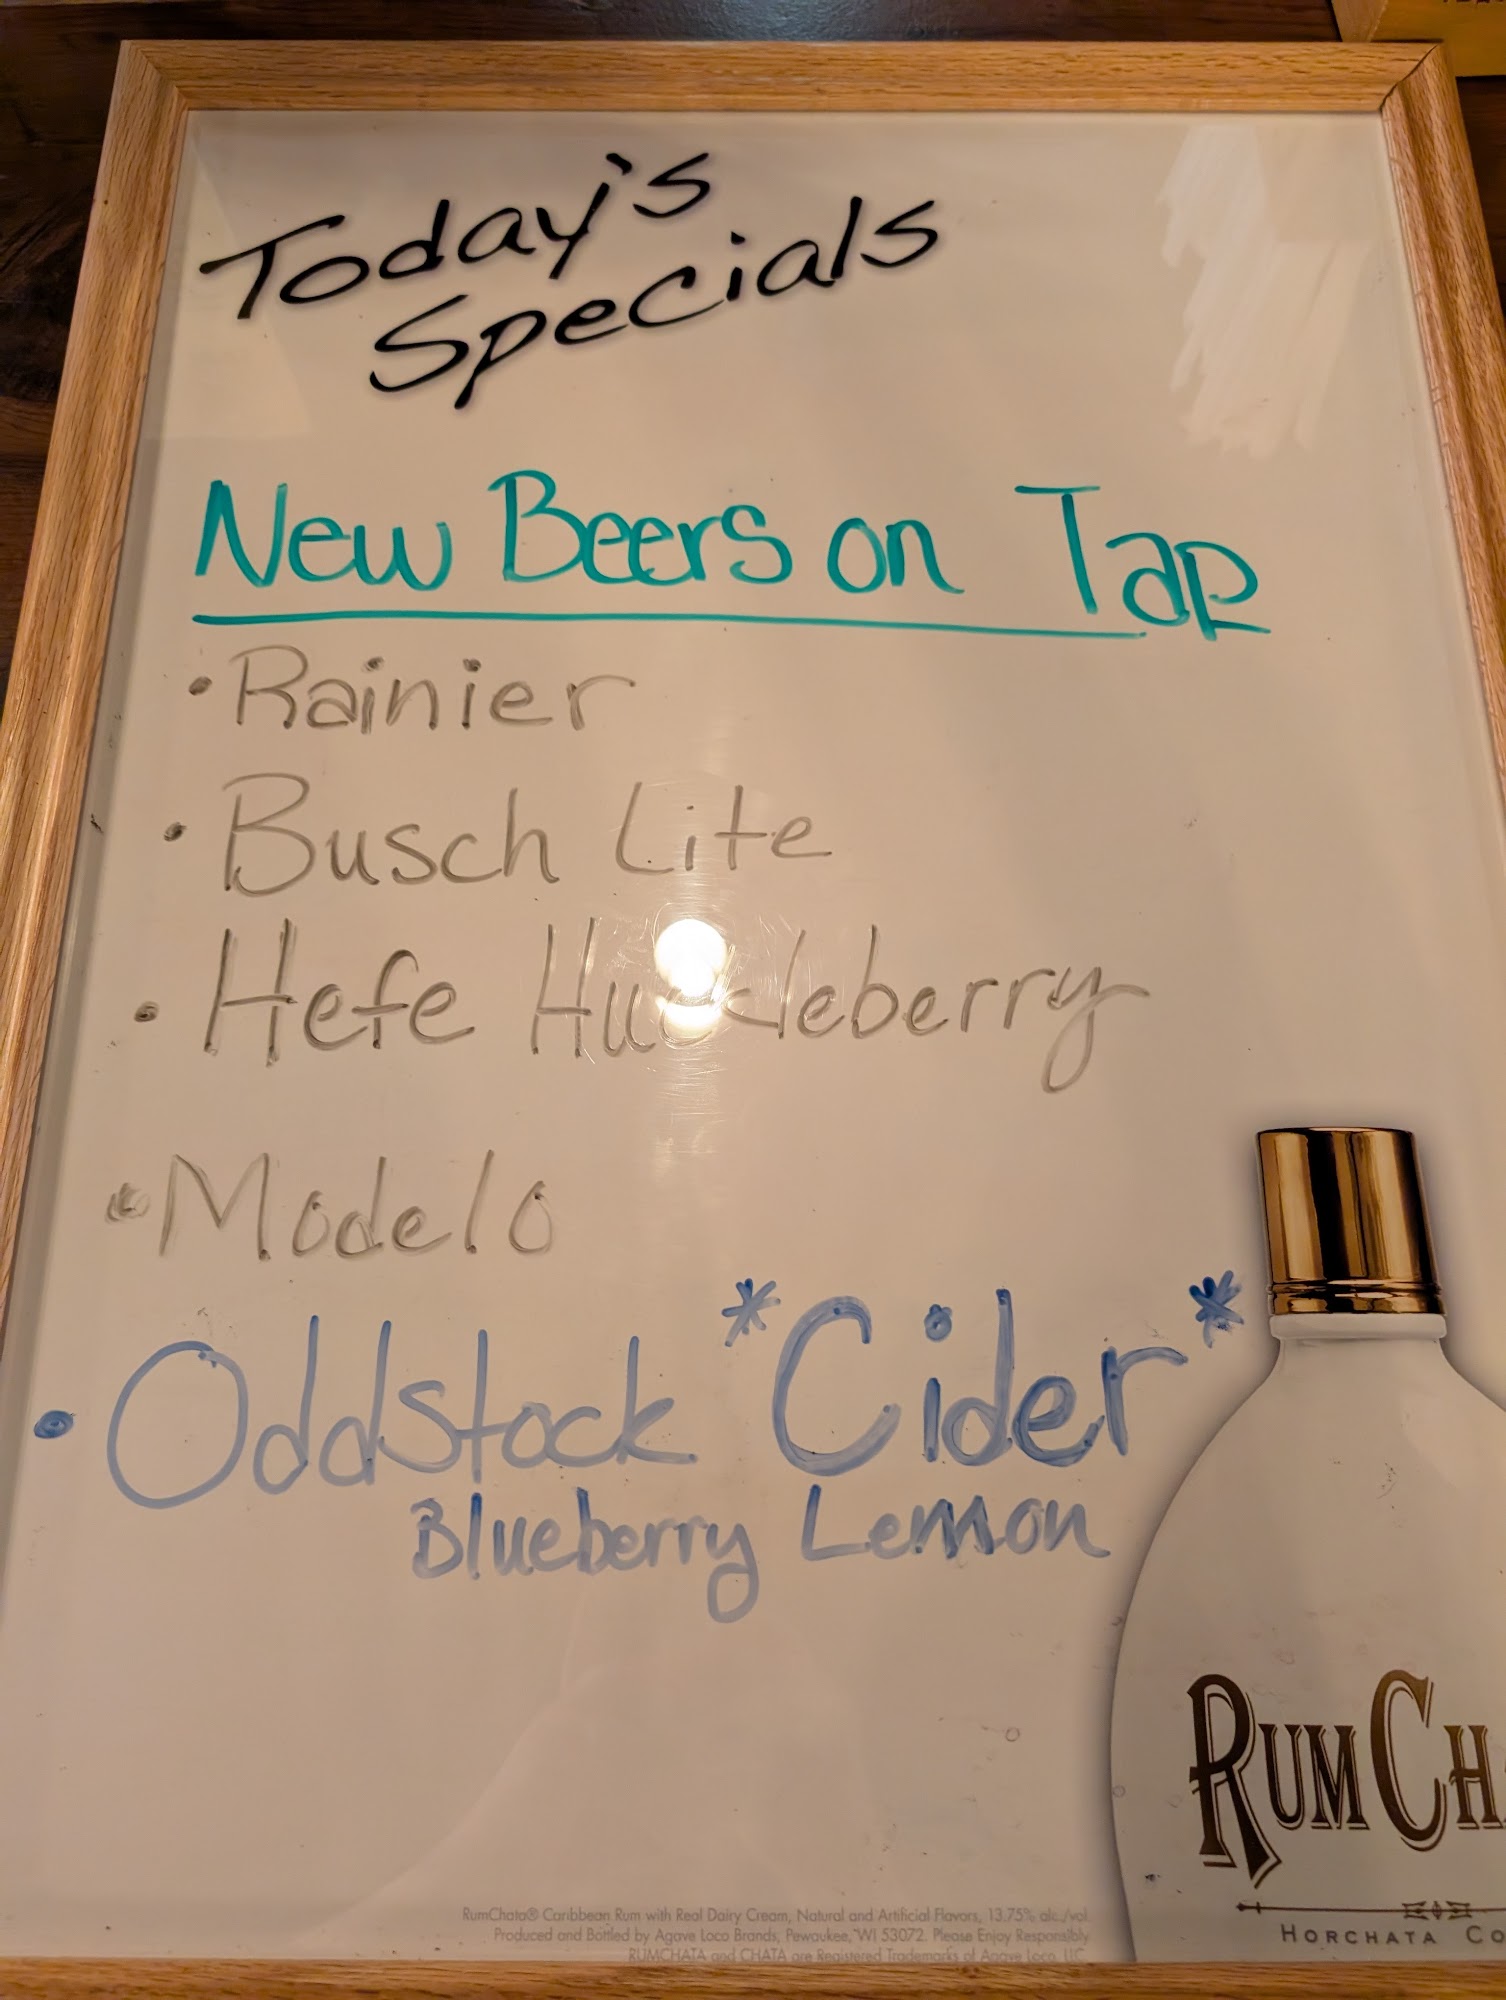 Today's
Specials
New Beers on Tap
• Rainier
• Busch Lite
• Hefe Huckleberry
• Modelo
• Oddstock *Cider*
Blueberry Lemon
RUMCH
HORCHATA CO
RumChata® Caribbean Rum with Real Dairy Cream, Natural and Artificial Flavors, 13.75% alc./vol.
Produced and Bottled by Agave Loco Brands, Pewaukee, WI 53072. Please Enjoy Responsibly
RUMCHATA and CHATA are Registered Trademarks of Agave Loco, LLC